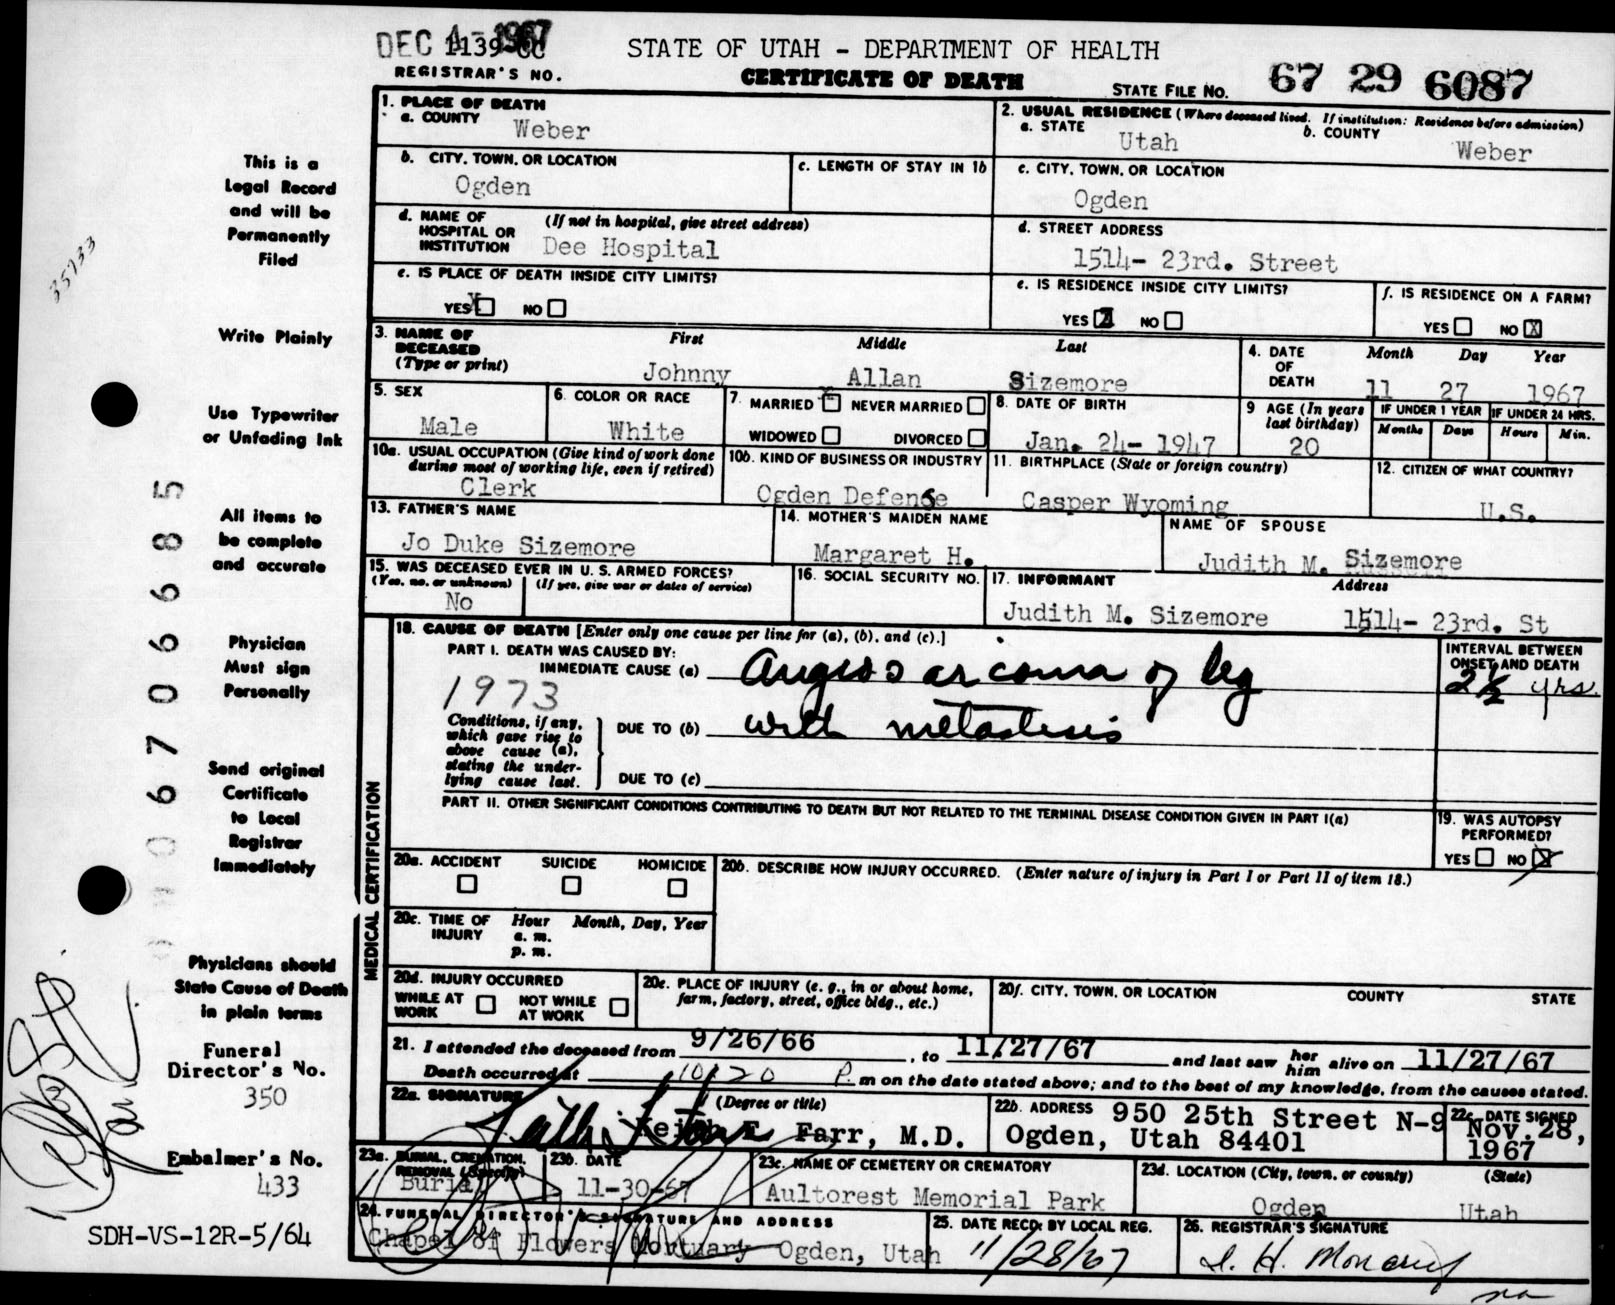 DEC 4 - 1967
1139
STATE OF UTAH - DEPARTMENT OF HEALTH
REGISTRAR'S NO.
CERTIFICATE OF DEATH
STATE FILE NO. 67 29 6087
1. PLACE OF DEATH
a. COUNTY
Weber
2. USUAL RESIDENCE (Where deceased lived. If institution: Residence before admission)
a. STATE
Utah
b. COUNTY
Weber
b. CITY, TOWN, OR LOCATION
Ogden
c. LENGTH OF STAY IN 1b
c. CITY, TOWN, OR LOCATION
Ogden
d. NAME OF HOSPITAL OR INSTITUTION
(If not in hospital, give street address)
Dee Hospital
d. STREET ADDRESS
1514- 23rd. Street
e. IS PLACE OF DEATH INSIDE CITY LIMITS?
YES X NO
e. IS RESIDENCE INSIDE CITY LIMITS?
YES X NO
f. IS RESIDENCE ON A FARM?
YES NO X
3. NAME OF DECEASED
(Type or print)
First Middle Last
Johnny Allan Sizemore
4. DATE OF DEATH
Month Day Year
11 27 1967
5. SEX
Male
6. COLOR OR RACE
White
7. MARRIED X NEVER MARRIED
WIDOWED DIVORCED
8. DATE OF BIRTH
Jan. 24- 1947
9 AGE (In years last birthday)
20
IF UNDER 1 YEAR
Months Days
IF UNDER 24 HRS.
Hours Min.
10a. USUAL OCCUPATION (Give kind of work done during most of working life, even if retired)
Clerk
10b. KIND OF BUSINESS OR INDUSTRY
Ogden Defense
11. BIRTHPLACE (State or foreign country)
Casper Wyoming
12. CITIZEN OF WHAT COUNTRY?
U.S.
13. FATHER'S NAME
Jo Duke Sizemore
14. MOTHER'S MAIDEN NAME
Margaret H.
NAME OF SPOUSE
Judith M. Sizemore
15. WAS DECEASED EVER IN U. S. ARMED FORCES?
(Yes, no, or unknown) (If yes, give war or dates of service)
No
16. SOCIAL SECURITY NO.
17. INFORMANT Address
Judith M. Sizemore 1514- 23rd. St
18. CAUSE OF DEATH [Enter only one cause per line for (a), (b), and (c).]
PART I. DEATH WAS CAUSED BY:
IMMEDIATE CAUSE (a) Angiosarcoma of leg
1973
Conditions, if any, which gave rise to above cause (a), stating the underlying cause last.
DUE TO (b) with metastesis
DUE TO (c)
INTERVAL BETWEEN ONSET AND DEATH
2½ yrs
PART II. OTHER SIGNIFICANT CONDITIONS CONTRIBUTING TO DEATH BUT NOT RELATED TO THE TERMINAL DISEASE CONDITION GIVEN IN PART I(a)
19. WAS AUTOPSY PERFORMED?
YES NO X
MEDICAL CERTIFICATION
20a. ACCIDENT SUICIDE HOMICIDE
20b. DESCRIBE HOW INJURY OCCURRED. (Enter nature of injury in Part I or Part II of item 18.)
20c. TIME OF INJURY
Hour Month, Day, Year
a. m.
p. m.
20d. INJURY OCCURRED
WHILE AT WORK NOT WHILE AT WORK
20e. PLACE OF INJURY (e. g., in or about home, farm, factory, street, office bldg., etc.)
20f. CITY, TOWN, OR LOCATION COUNTY STATE
21. I attended the deceased from 9/26/66, to 11/27/67 and last saw her him alive on 11/27/67
Death occurred at 10:20 P. m on the date stated above; and to the best of my knowledge, from the causes stated.
22a. SIGNATURE (Degree or title)
Keith E. Farr, M.D.
22b. ADDRESS 950 25th Street N-9
Ogden, Utah 84401
22c. DATE SIGNED
Nov. 28, 1967
23a. BURIAL, CREMATION, REMOVAL (Specify)
Burial
23b. DATE
11-30-67
23c. NAME OF CEMETERY OR CREMATORY
Aultorest Memorial Park
23d. LOCATION (City, town, or county) (State)
Ogden Utah
24. FUNERAL DIRECTOR'S SIGNATURE AND ADDRESS
Chapel of Flowers Mortuary Ogden, Utah
25. DATE RECD. BY LOCAL REG.
11/28/67
26. REGISTRAR'S SIGNATURE
This is a
Legal Record
and will be
Permanently
Filed
35733
Write Plainly
Use Typewriter
or Unfading Ink
All items to
be complete
and accurate
Physician
Must sign
Personally
Send original
Certificate
to Local
Registrar
Immediately
Physicians should
State Cause of Death
in plain terms
Funeral
Director's No.
350
Embalmer's No.
433
SDH-VS-12R-5/64
0067066885